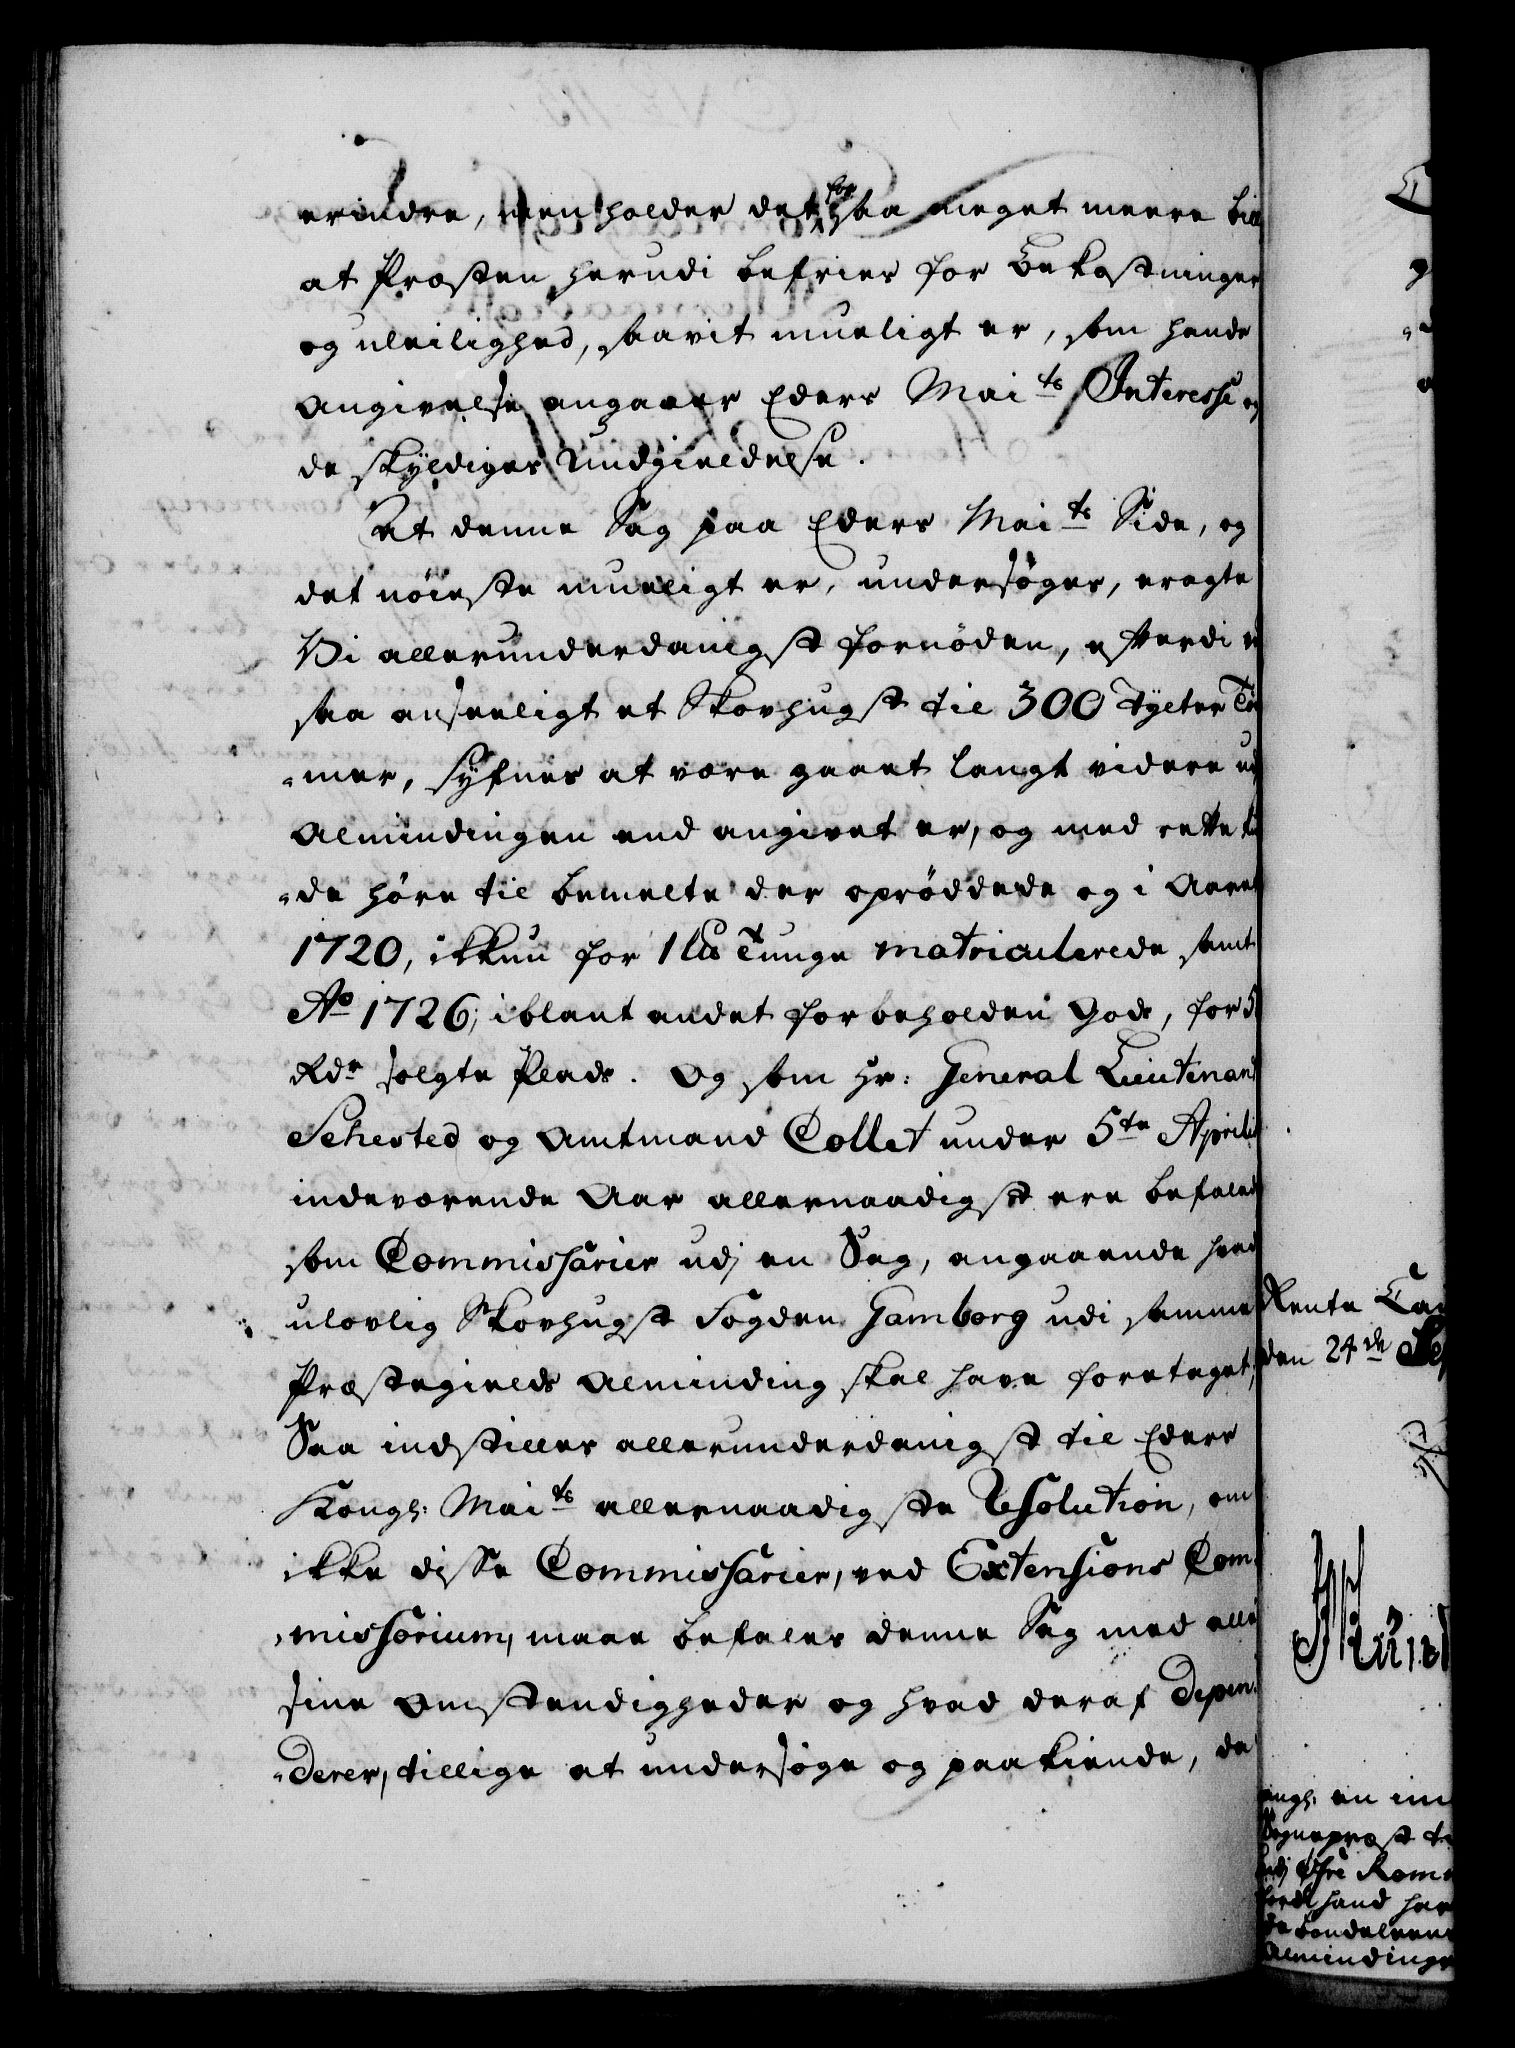 erindre, men holder det for saa meget meere bill
at Præsten herudi befries for Bekostninger
og uleilighed, saavit mueligt er, som hands
Angivelse angaaer Eders Mai ts Interesse og
de skyldiges Undgieldelse.
At denne Sag paa Eders Mai ts Side, og
det nöieste mueligt er, undersöges, eragte
Vi allerunderdanigst fornöden, efterdi
saa anseeligt et Skovhugst til 300 Tylter Töm
-mer, synes at være gaaet langt videre ud
Almindingen end angivet er, og med rette
-de høre til bemelte der oprøddede og i Aaret
1720, ikkun for 1 Lb Tunge matriculerede samt
Ao 1726, iblant andet forbeholden Gods, for 5
Rdr solgte Plads. Og som Hr: General Lieutenant
Sehested og Amtmand Collet under 5te Aprilis
indeværende Aar allernaadigst ere befalede
som Commissarier udj en Sag, angaaende hvad
ulovlig Skovhugst Fogden Gamborg udi samme
Præstegields Alminding skal have foretaget,
Saa indstilles allerunderdanigst til Eders
Kongl: Mai ts allernaadigste Resolution, om
ikke disse Commissarier, ved Extensions Com-
-missorium, maae befales denne Sag med alle
sine Omstendigheder og hvad deraf depen-
-derer, tillige at undersöge og paakiende, da
Rente Cam
den 24de Sep
en
Sognepræst
Øfre Rom
hand har
Almindinge